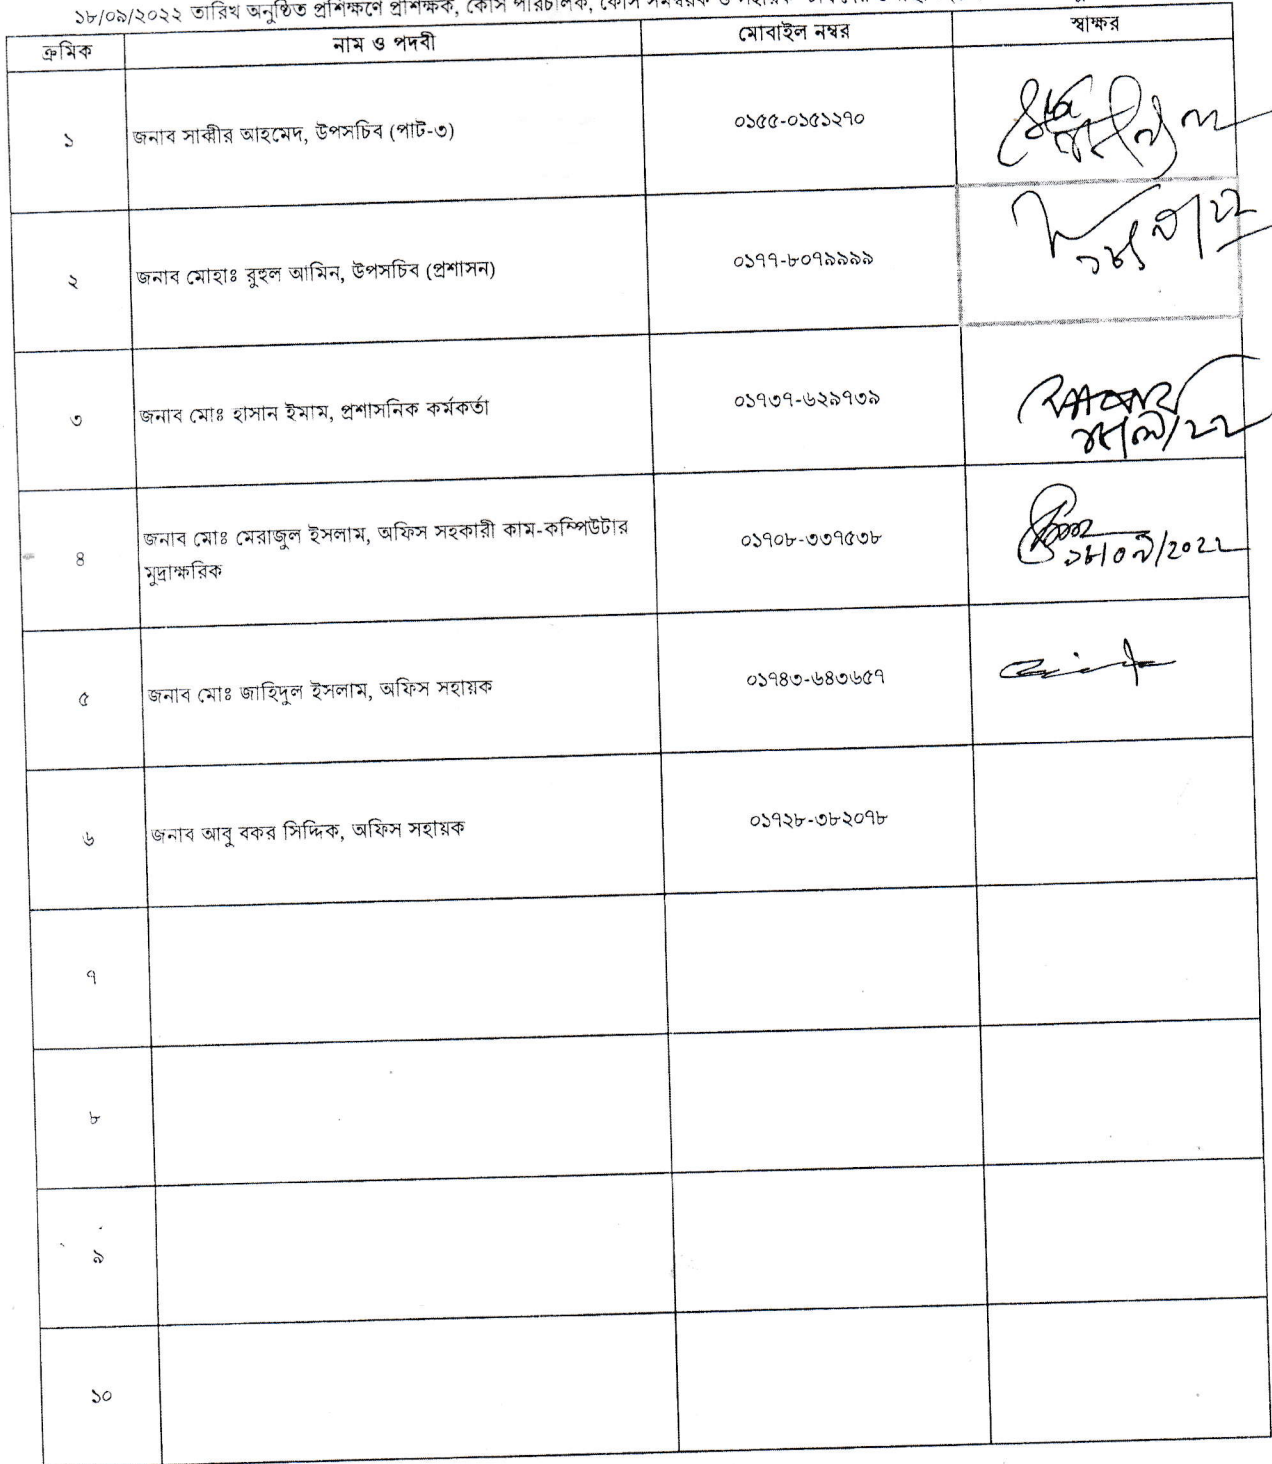 ১৮/০৯/২০২২ তারিখ অনুষ্ঠিত প্রশিক্ষণে প্রশিক্ষক, কোর্স পরিচালক, কোর্স সমন্বয়ক ও সহায়ক
ক্রমিক নাম ও পদবী মোবাইল নম্বর স্বাক্ষর
১ জনাব সাব্বীর আহমেদ, উপসচিব (পাট-৩) ০১৫৫-০১৫১২৭০
২ জনাব মোহাঃ রুহুল আমিন, উপসচিব (প্রশাসন) ০১৭৭-৮০৭৯৯৯৯
১৮/৯/২২
৩ জনাব মোঃ হাসান ইমাম, প্রশাসনিক কর্মকর্তা ০১৭৩৭-৬২৯৭৩৯
১৮/০৯/২২
৪ জনাব মোঃ মেরাজুল ইসলাম, অফিস সহকারী কাম-কম্পিউটার ০১৭০৮-৩৩৭৫৩৮
মুদ্রাক্ষরিক
১৮/০৯/২০২২
৫ জনাব মোঃ জাহিদুল ইসলাম, অফিস সহায়ক ০১৭৪৩-৬৪৩৬৫৭
৬ জনাব আবু বকর সিদ্দিক, অফিস সহায়ক ০১৭২৮-৩৮২০৭৮
৭
৮
৯
১০